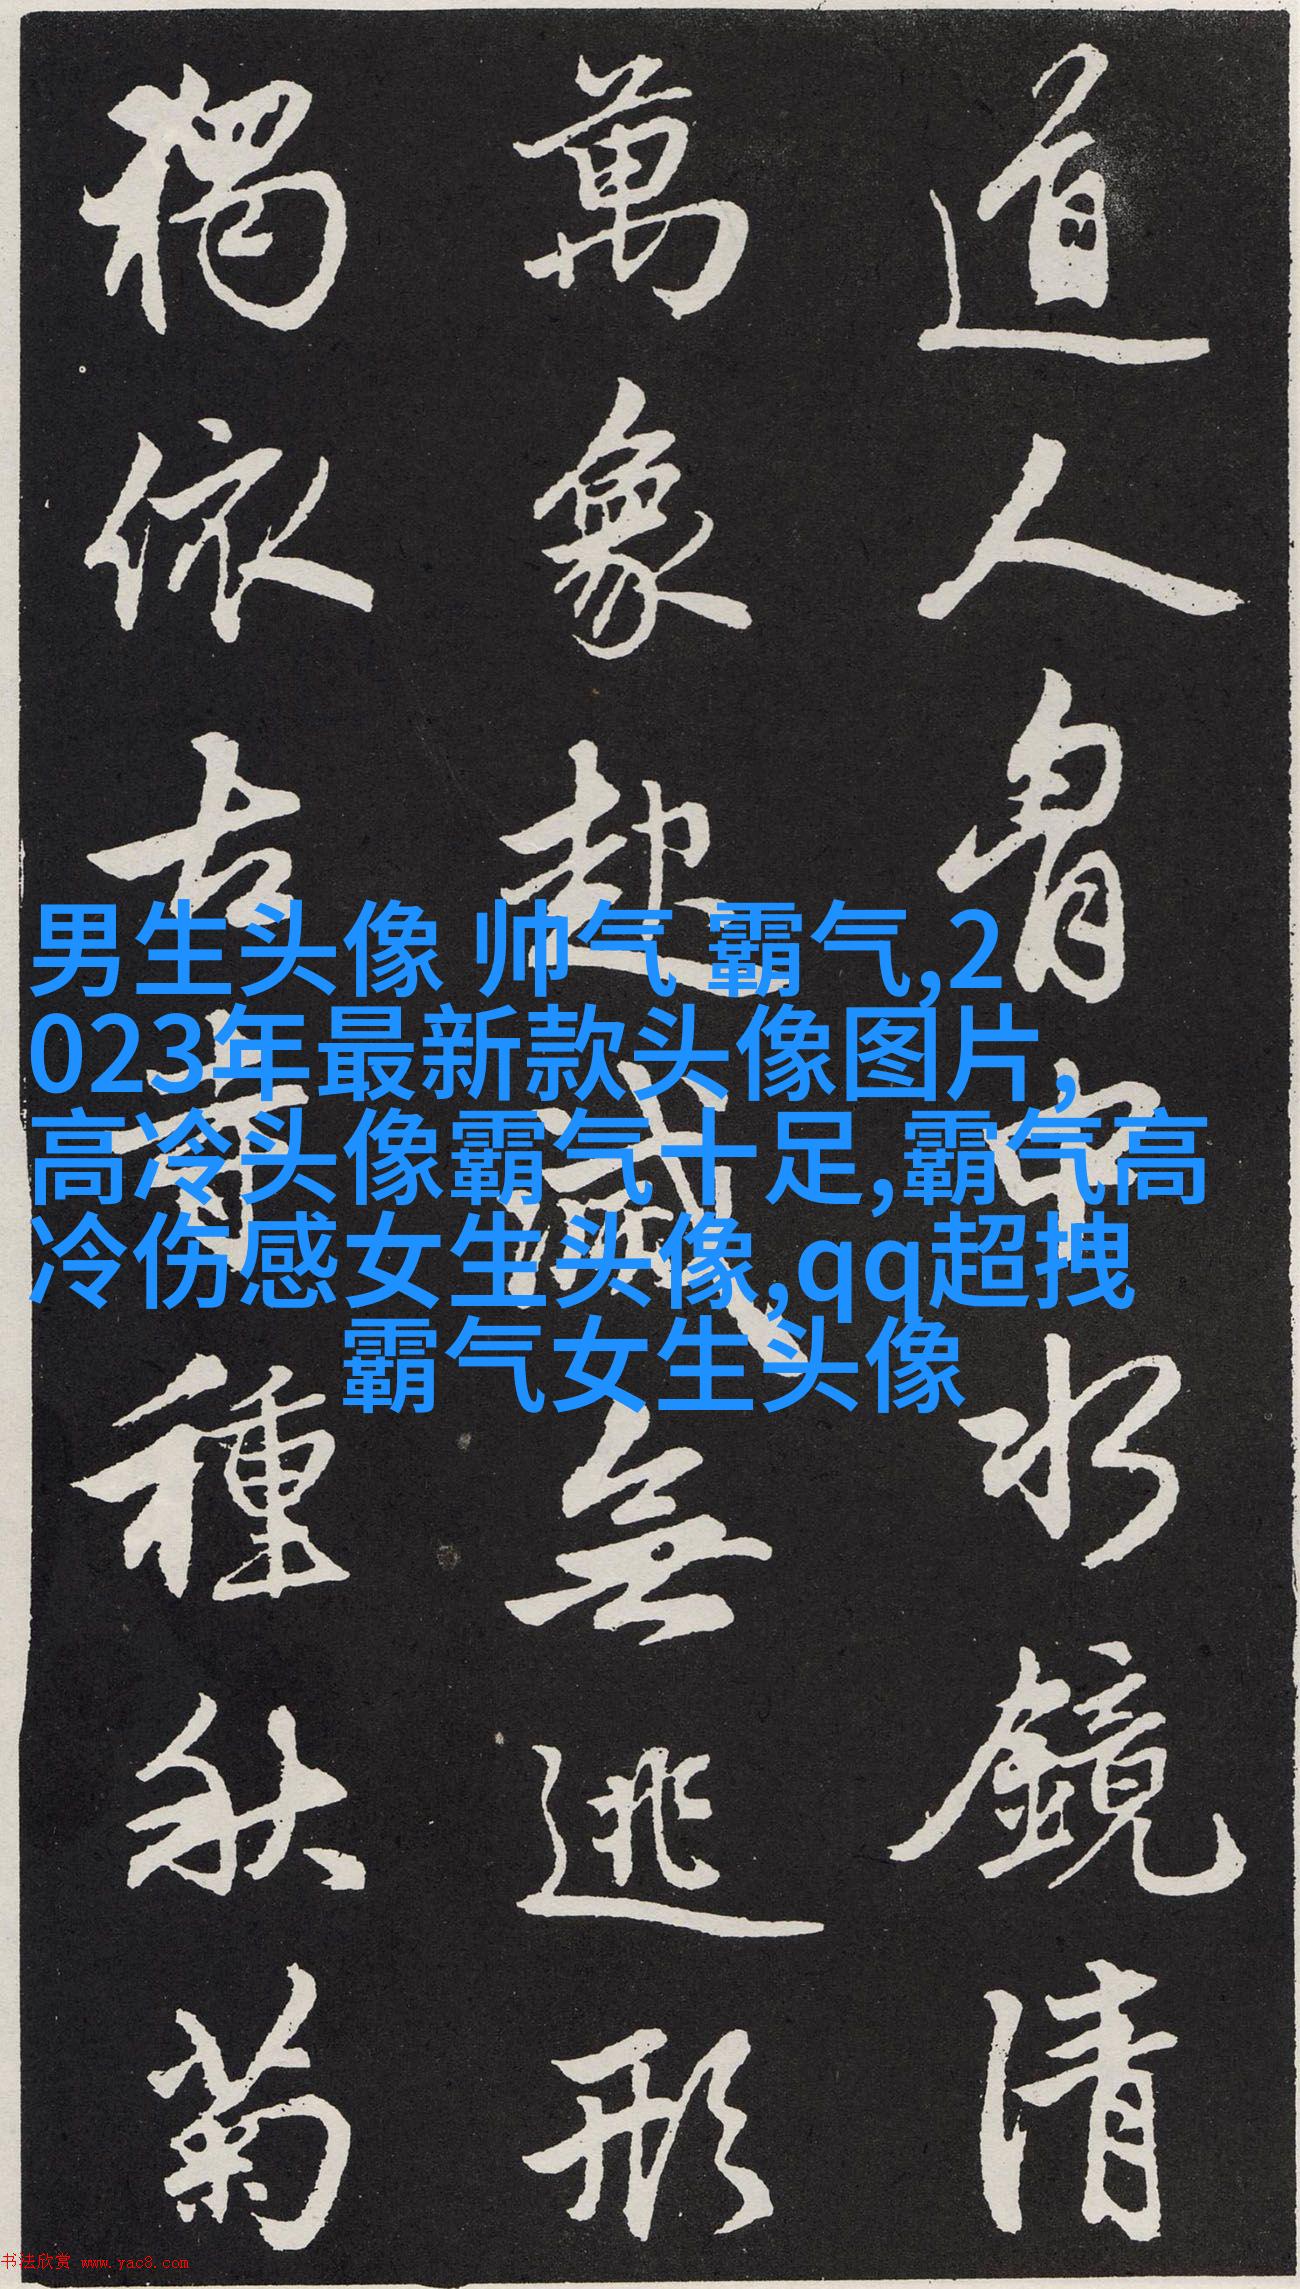 道人胷中水鏡清
萬象起滅無逃形
獨依古寺種秋菊
男生头像 帅气 霸气,2
023年最新款头像图片,
高冷头像霸气十足,霸气高
冷伤感女生头像,qq超拽
霸气女生头像
书法欣赏 www.yac8.com